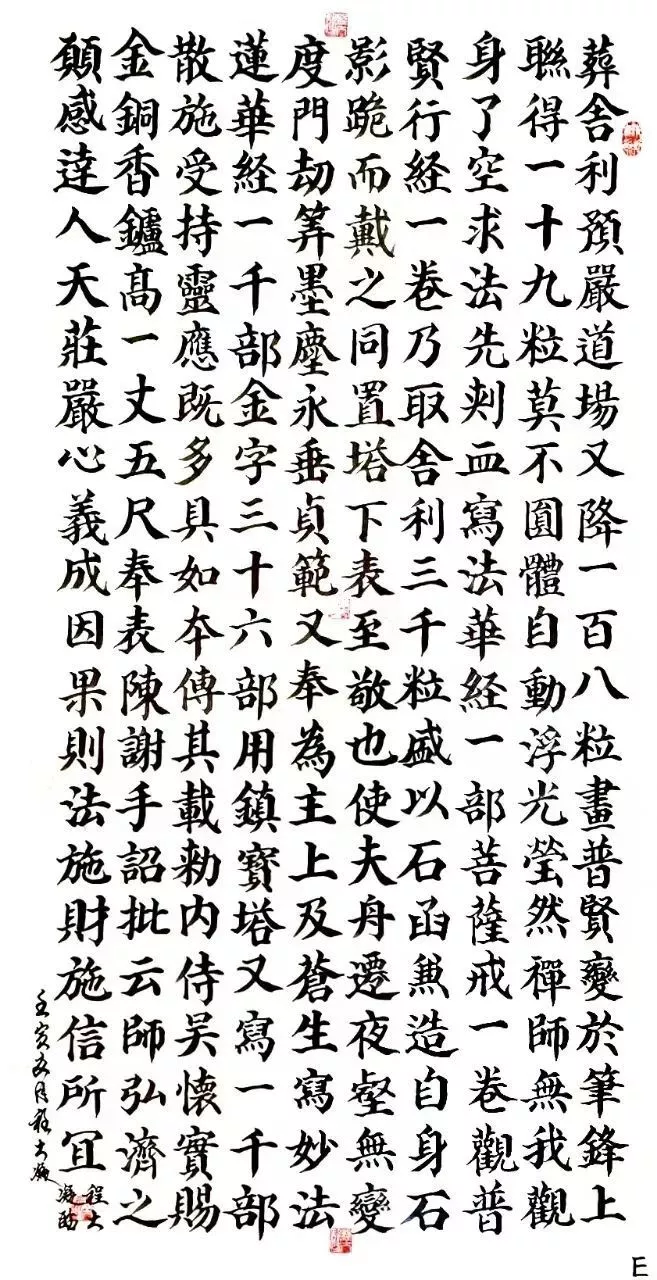 葬舎利預嚴道場又降一百八粒畫普賢變於筆鋒上
聮得一十九粒莫不圓體自動浮光瑩然禪師無我觀
身了空求法先刾血寫法華経一部菩薩戒一卷觀普
賢行経一卷乃取舎利三千粒盛以石函兼造自身石
影跪而戴之同置塔下表至敬也使夫舟遷夜壑無變
度門劫筭墨塵永垂貞範又奉為主上及蒼生寫妙法
蓮華経一千部金字三十六部用鎮寶塔又寫一千部
散施受持靈應既多具如本傳其載勑內侍吴懷實賜
金銅香鑪髙一丈五尺奉表陳謝手詔批云師弘濟之
願感達人天莊嚴心義成因果則法施財施信所冝
壬寅
程大
E